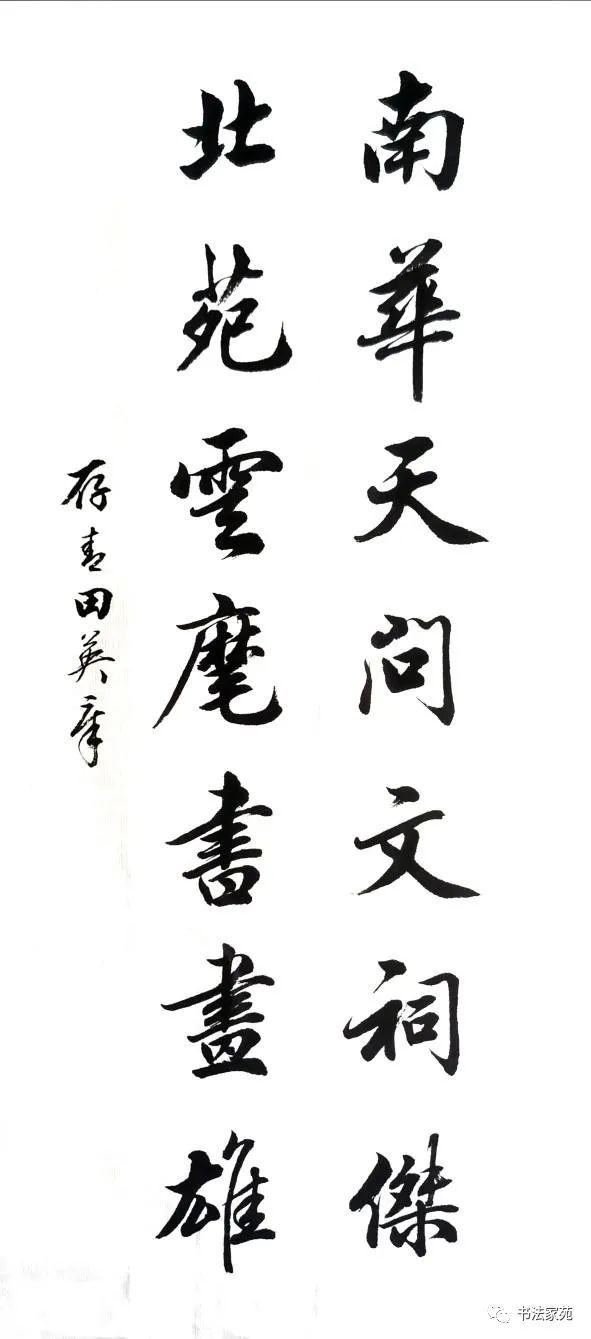 南華天問文祠傑
北苑雲麾書畫雄
存青田英章
书法家苑